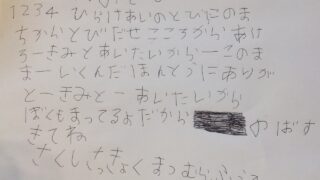 1234 ひらけあいのとびこのま
ちからとびだせこころからあけ
ろーきみとあいたいからーこのま
まーしくんだほんとうにありが
とーきみとーあいたいから
ぼくもまってるよだから のばす
きてね
さくしさっきょくまつむら